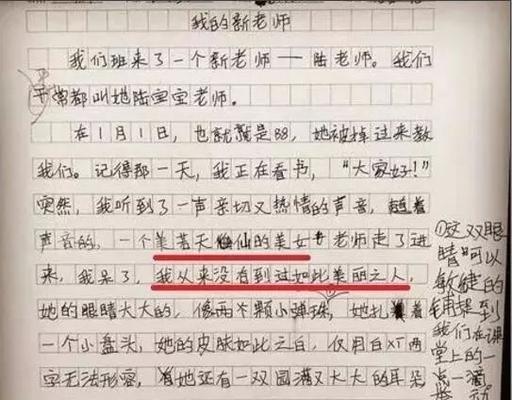 我的新老师
我们班来了一个新老师——陆老师。我们
平常都叫她陆宝宝老师。
在1月1日，也就是88，她被掉过来教
我们。记得那一天，我正在看书，“大家好！”
突然，我听到了一声亲切又热情的声音，趁着
声音的，一个美若天仙的美女老师走了进
来，我呆了，我从来没有看到过如此美丽之人，
她的眼睛大大的，像两个颗小弹珠，她扎着
一个小盘头，她的皮肤如此之白，仅用白XT两
字无法形容，她还有一双圆满又大大的耳朵
①这双眼
睛可以
敏捷的
捕捉到
我们在课
堂上的一
点一滴